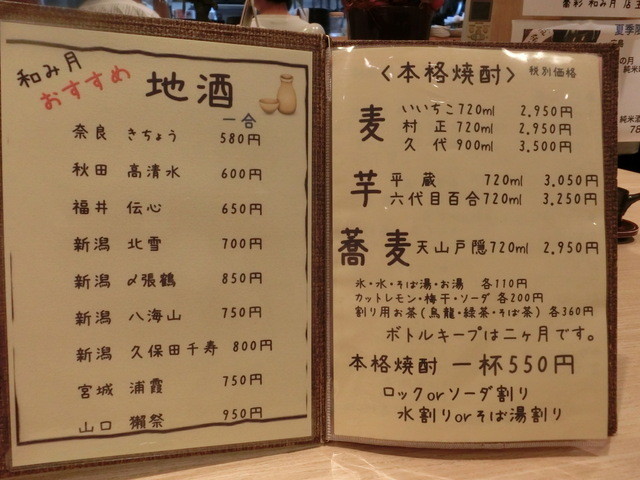 和み月
おすすめ
地酒
一合
奈良 きちょう 580円
秋田 高清水 600円
福井 伝心 650円
新潟 北雪 700円
新潟 〆張鶴 850円
新潟 八海山 750円
新潟 久保田千寿 800円
宮城 浦霞 750円
山口 獺祭 950円
〈本格焼酎〉 税別価格
麦
いいちこ 720ml 2.950円
村正 720ml 2.950円
久代 900ml 3.500円
芋
平蔵 720ml 3.050円
六代目百合 720ml 3.250円
蕎麦 天山戸隠 720ml 2.950円
氷・水・そば湯・お湯 各110円
カットレモン・梅干・ソーダ 各200円
割り用お茶(烏龍・緑茶・そば茶) 各360円
ボトルキープは二ヶ月です。
本格焼酎 一杯550円
ロックorソーダ割り
水割りorそば湯割り
和み月 店主
夏季限
の月
純米
純米酒